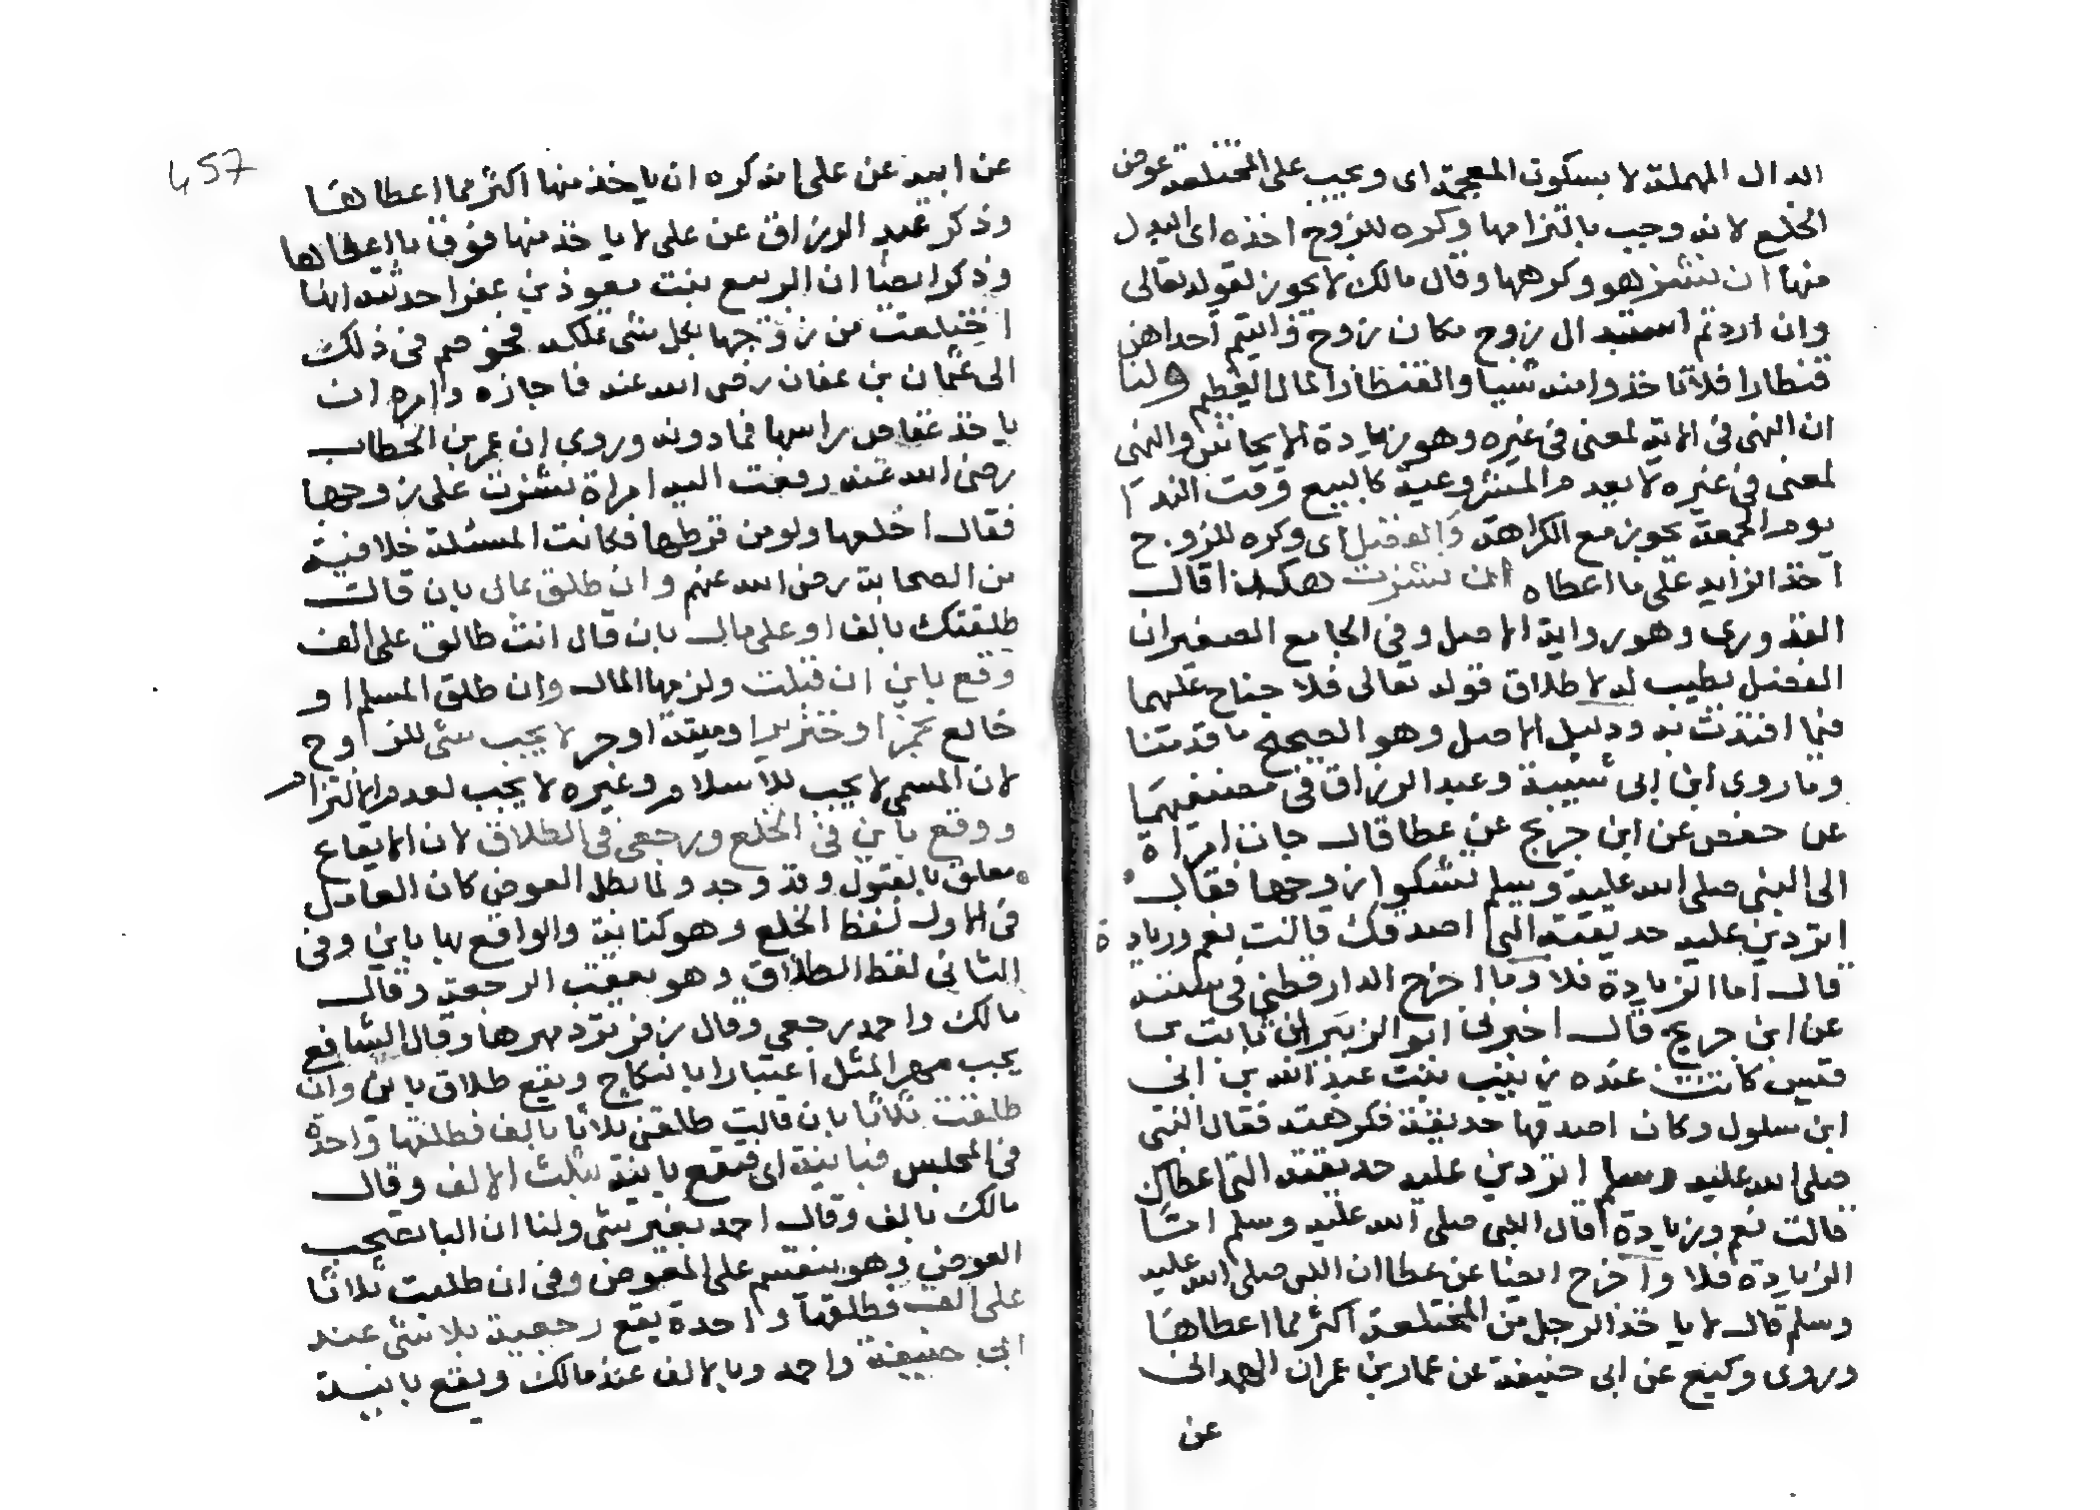 الدال المهملة لا بسكون المعجمة اى ويجب على المختلعة عوض
الخلع لانه وجب بالتزامها وكره للزوج اخذه اى البدل
منها ان نشز هو وكرهها وقال مالك لا يجوز لقوله تعالى
وان اردتم استبدال زوج مكان زوج واتيتم احداهن
قنطارا فلا تاخذوا منه شيا والقنطار المال العظيم ولنا
ان النهى فى الاية لمعنى فى غيره وهو زيادة الايحاش والنهى
لمعنى فى غيره لا يعدم المشروعية كالبيع وقت الندا
يوم الجمعة يجوز مع الكراهة والفضل اى وكره للزوج
اخذ الزايد على ما اعطاه ان نشزت هكذا قال
القدورى وهو رواية الاصل وفى الجامع الصغير ان
الفضل يطيب له لاطلاق قوله تعالى فلا جناح عليهما
فيما افتدت به ودليل الاصل وهو الصحيح ما قدمنا
وما روى ابن ابى شيبة وعبد الرزاق فى مصنفيهما
عن حفص عن ابن جريج عن عطا قال جات امراة
الى النبى صلى الله عليه وسلم تشكوا زوجها فقال
اتردين عليه حديقته التى اصدقك قالت نعم وزيادة
قال اما الزيادة فلا وما اخرج الدارقطنى فى سننه
عن ابن جريج قال اخبرنى ابو الزبير ان ثابت بن
قيس كانت عنده زينب بنت عبد الله بن ابى
ابن سلول وكان اصدقها حديقة فكرهته فقال النبى
صلى الله عليه وسلم اتردين عليه حديقته التى اعطاك
قالت نعم وزيادة فقال النبى صلى الله عليه وسلم اما
الزيادة فلا واخرج ايضا عن عطا ان النبى صلى الله عليه
وسلم قال لا ياخذ الرجل من المختلعة اكثر مما اعطاها
وروى وكيع عن ابى حنيفة عن عمار بن عمران الهمدانى
عن
457
عن ابيه عن على انه كره ان ياخذ منها اكثر مما اعطاها
وذكر عبد الرزاق عن على لا ياخذ منها فوق ما اعطاها
وذكر ايضا ان الربيع بنت معوذ بن عفرا حدثته انها
اختلعت من زوجها بكل شى تملكه فخوصم فى ذلك
الى عثمان بن عفان رضى الله عنه فاجازه وامره ان
ياخذ عقاص راسها فما دونه وروى ان عمر بن الخطاب
رضى الله عنه رفعت اليه امراة نشزت على زوجها
فقال اخلعها ولو من قرطها فكانت المسئلة خلافية
بين الصحابة رضى الله عنهم وان طلق بمال بان قالت
طلقتك بالف او على مال بان قال انت طالق على الف
وقع باين ان قبلت ولزمها المال وان طلق المسلم او
خالع بخمر او خنزير او ميتة او حر لا يجب شى للزوج
لان المسمى لا يجب للاسلام وغيره لا يجب لعدم الالتزام
ووقع باين فى الخلع ورجعى فى الطلاق لان الايقاع
معلق بالقبول وقد وجد ولما بطل العوض كان العامل
فى الاول لفظ الخلع وهو كناية والواقع بها باين وفى
الثانى لفظ الطلاق وهو يعقب الرجعة وقال
مالك واحمد رجعى وقال زفر ترد مهرها وقال الشافعى
يجب مهر المثل اعتبارا بالنكاح ويقع طلاق باين وان
طلقت ثلاثا بان قالت طلقنى ثلاثا بالف فطلقها واحدة
فى المجلس فباينة اى فيقع باينة بثلث الالف وقال
مالك بالف وقال احمد بغير شى ولنا ان البا تصحب
العوض وهو ينقسم على المعوض وفى ان طلبت ثلاثا
على الف فطلقها واحدة يقع رجعية بلا شى عند
ابى حنيفة واحمد وبالالف عند مالك ويقع باينة